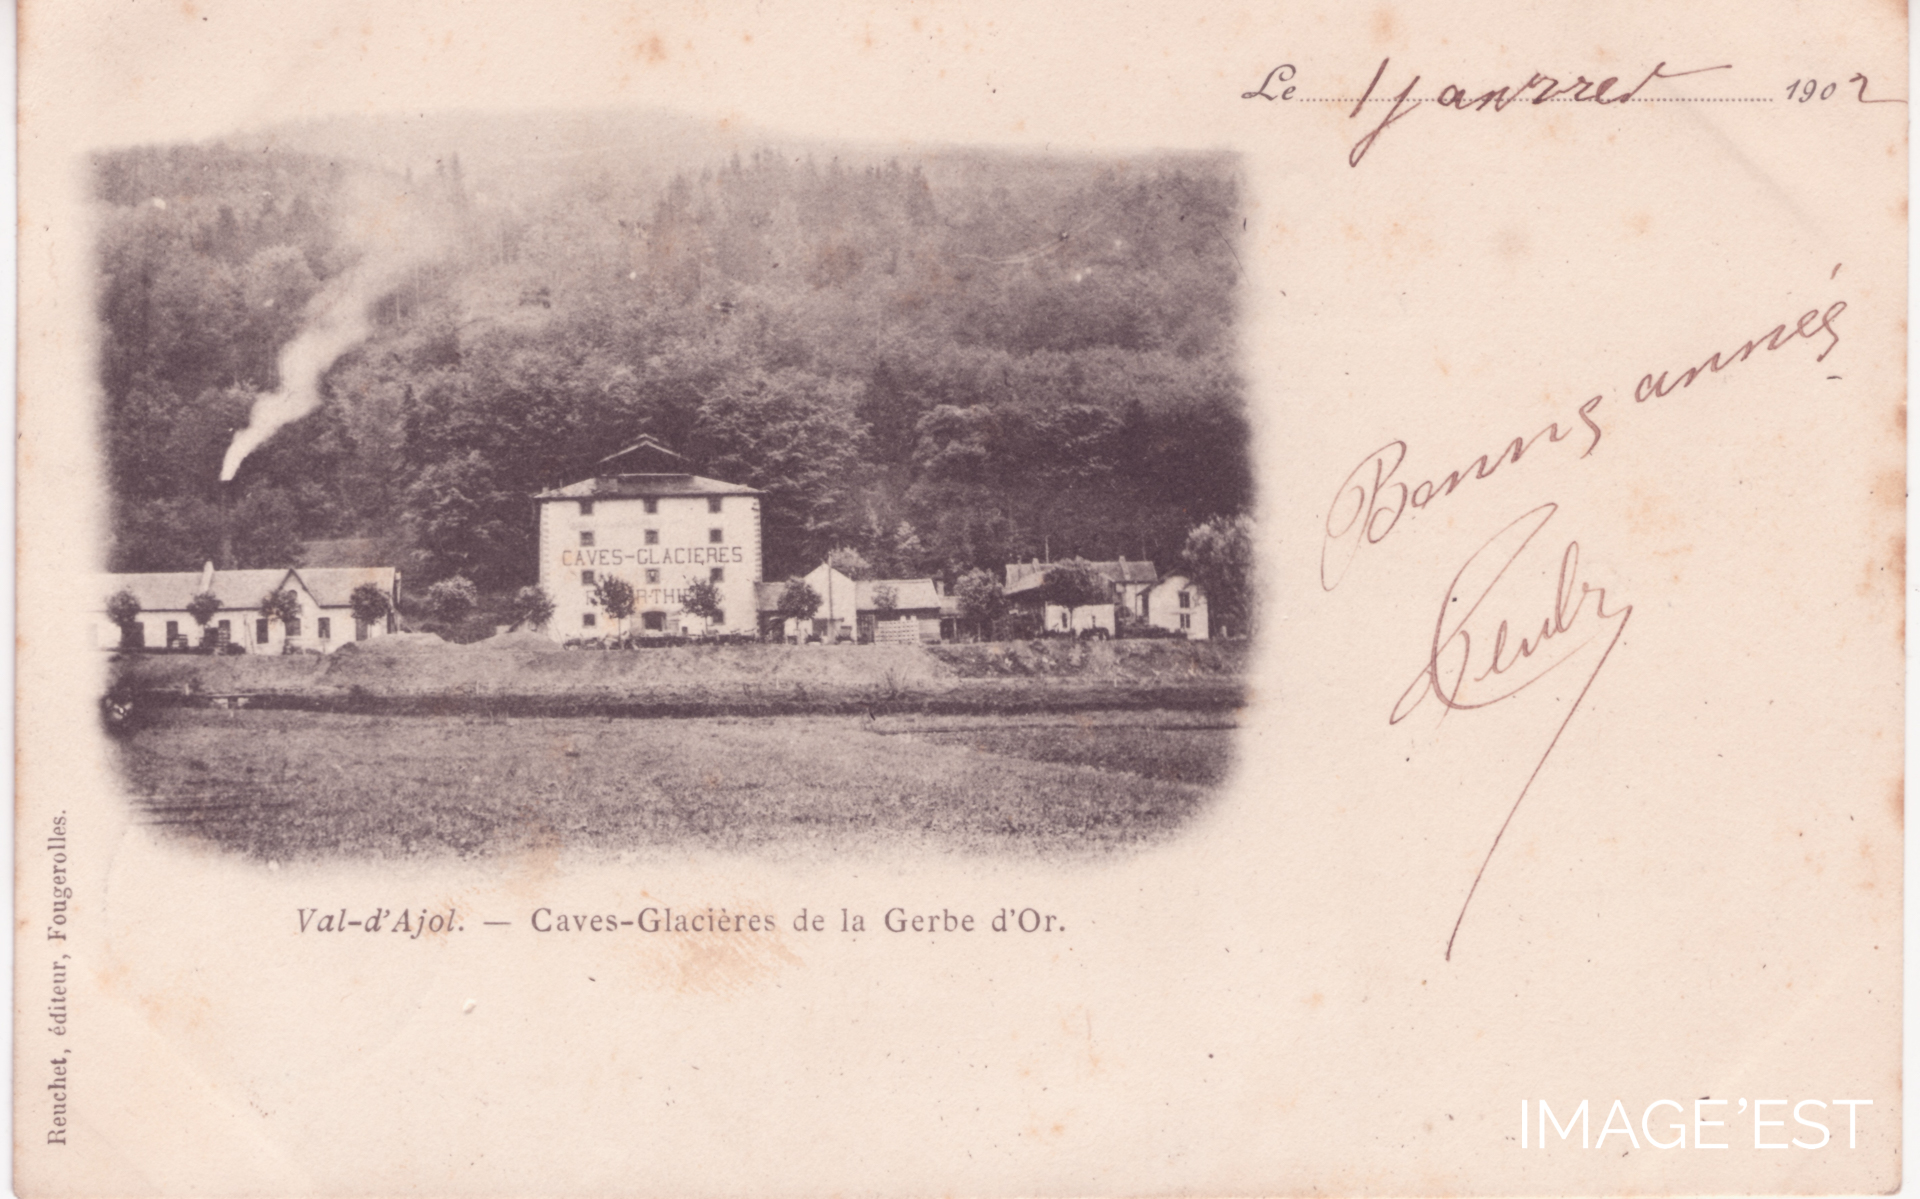 Le 1 janvier 1902
Bonne année
CAVES-GLACIERES
Val-d'Ajol. — Caves-Glacières de la Gerbe d'Or.
Reuchet, éditeur, Fougerolles.
IMAGE'EST